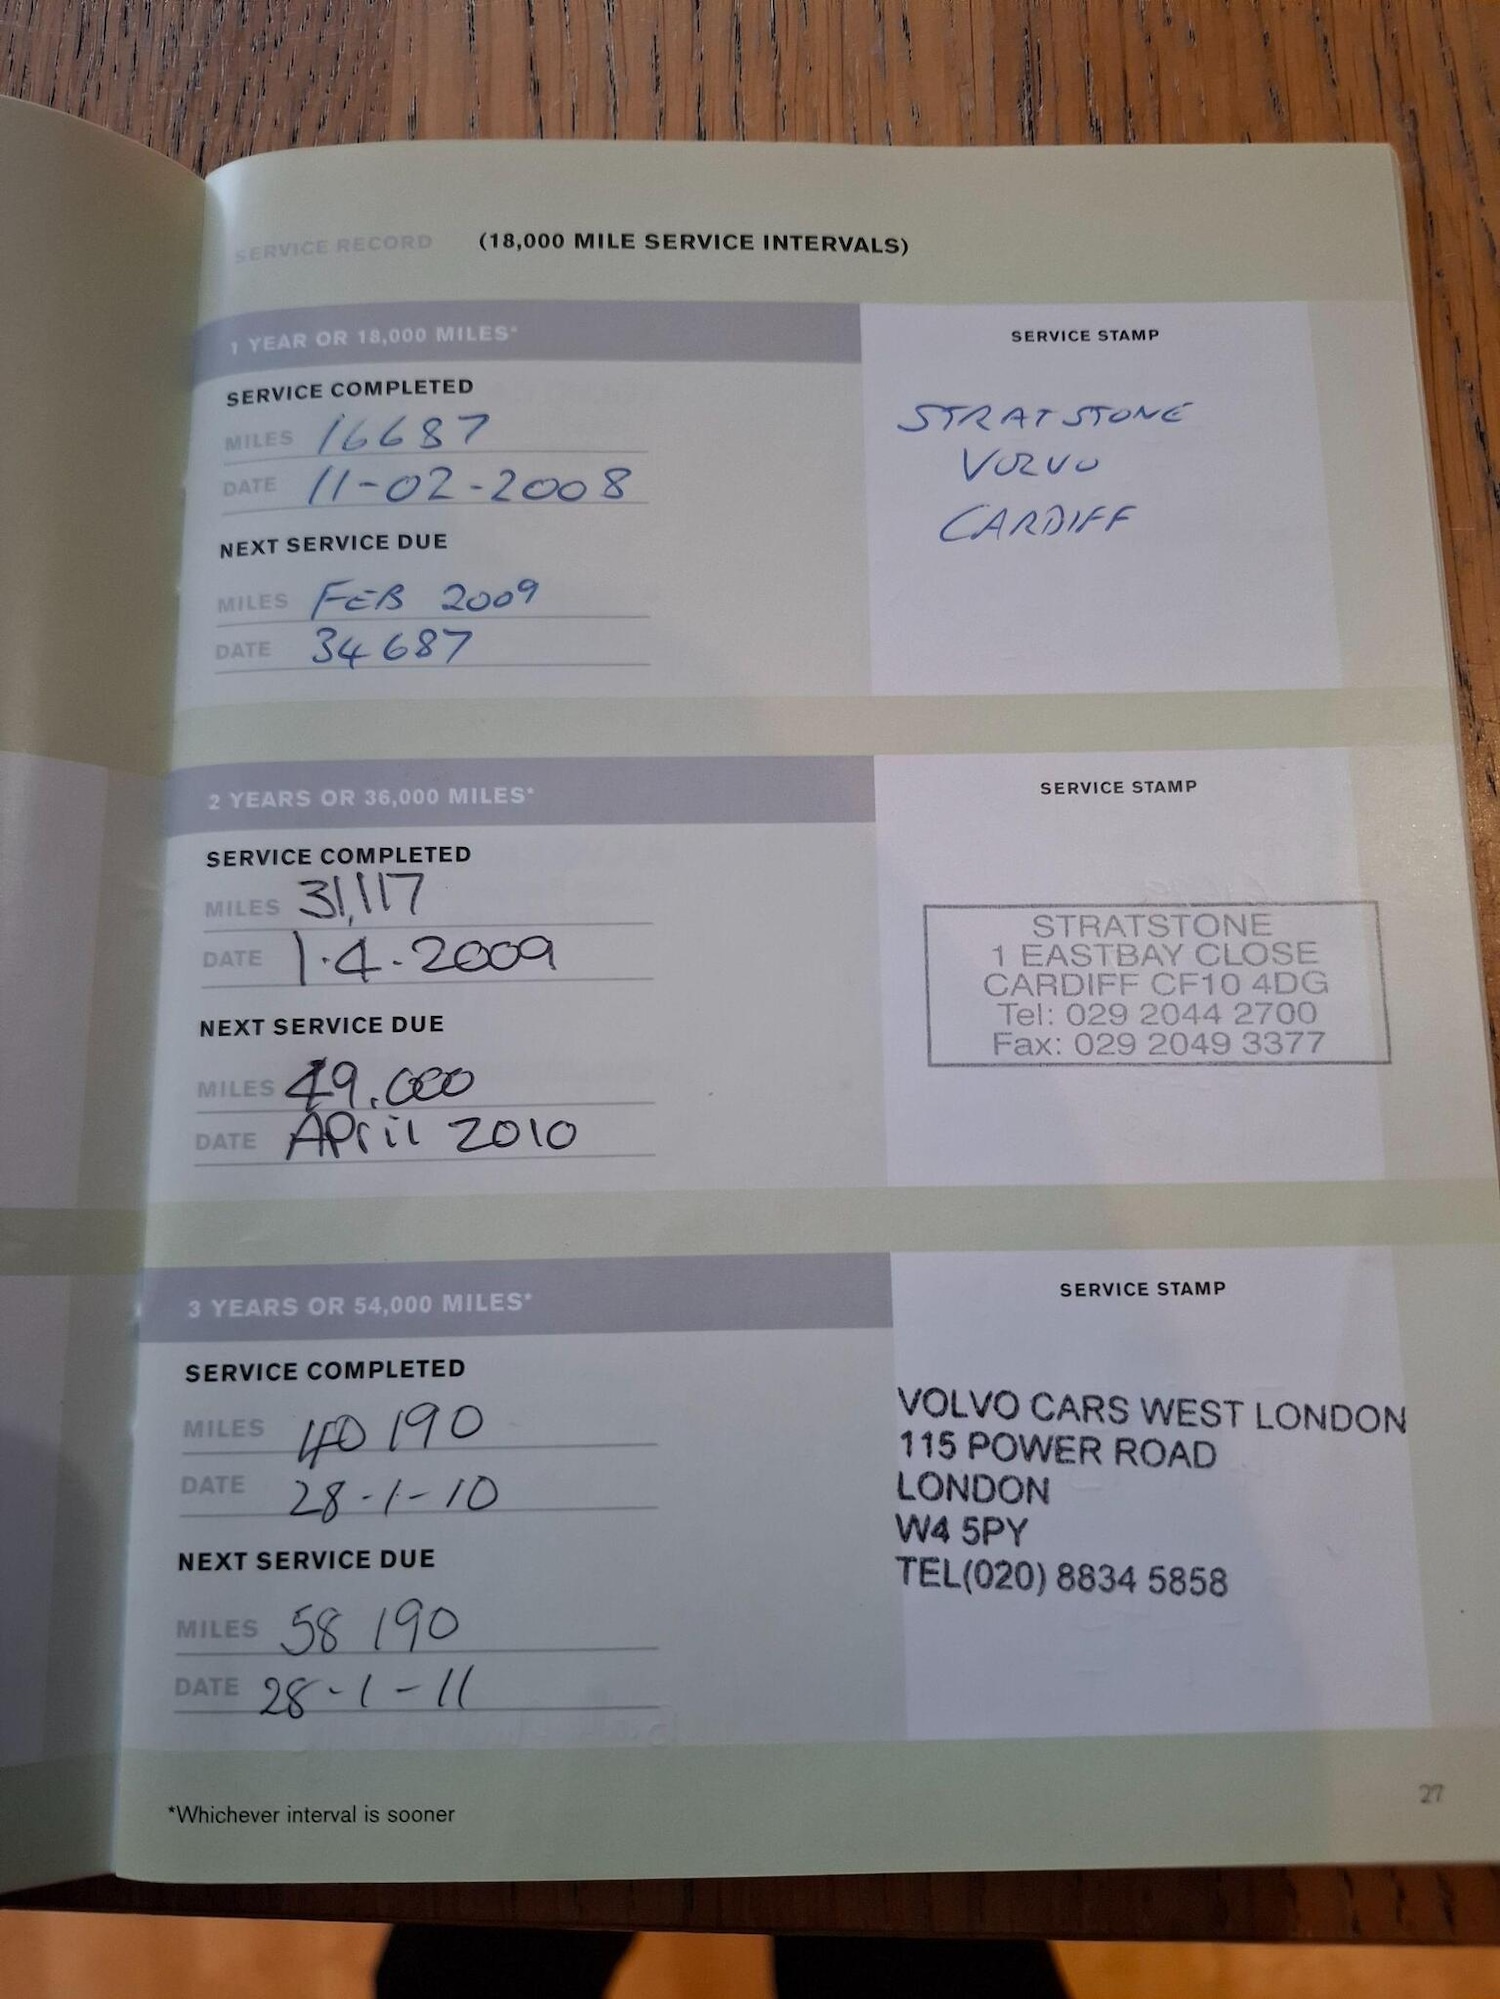 SERVICE RECORD (18,000 MILE SERVICE INTERVALS)
1 YEAR OR 18,000 MILES*
SERVICE COMPLETED
MILES 16687
DATE 11-02-2008
NEXT SERVICE DUE
MILES FEB 2009
DATE 34687
SERVICE STAMP
STRATSTONE
VOLVO
CARDIFF
2 YEARS OR 36,000 MILES*
SERVICE COMPLETED
MILES 31,117
DATE 1.4.2009
NEXT SERVICE DUE
MILES 49,000
DATE April 2010
SERVICE STAMP
STRATSTONE
1 EASTBAY CLOSE
CARDIFF CF10 4DG
Tel: 029 2044 2700
Fax: 029 2049 3377
3 YEARS OR 54,000 MILES*
SERVICE COMPLETED
MILES 40190
DATE 28-1-10
NEXT SERVICE DUE
MILES 58190
DATE 28-1-11
SERVICE STAMP
VOLVO CARS WEST LONDON
115 POWER ROAD
LONDON
W4 5PY
TEL(020) 8834 5858
*Whichever interval is sooner
27